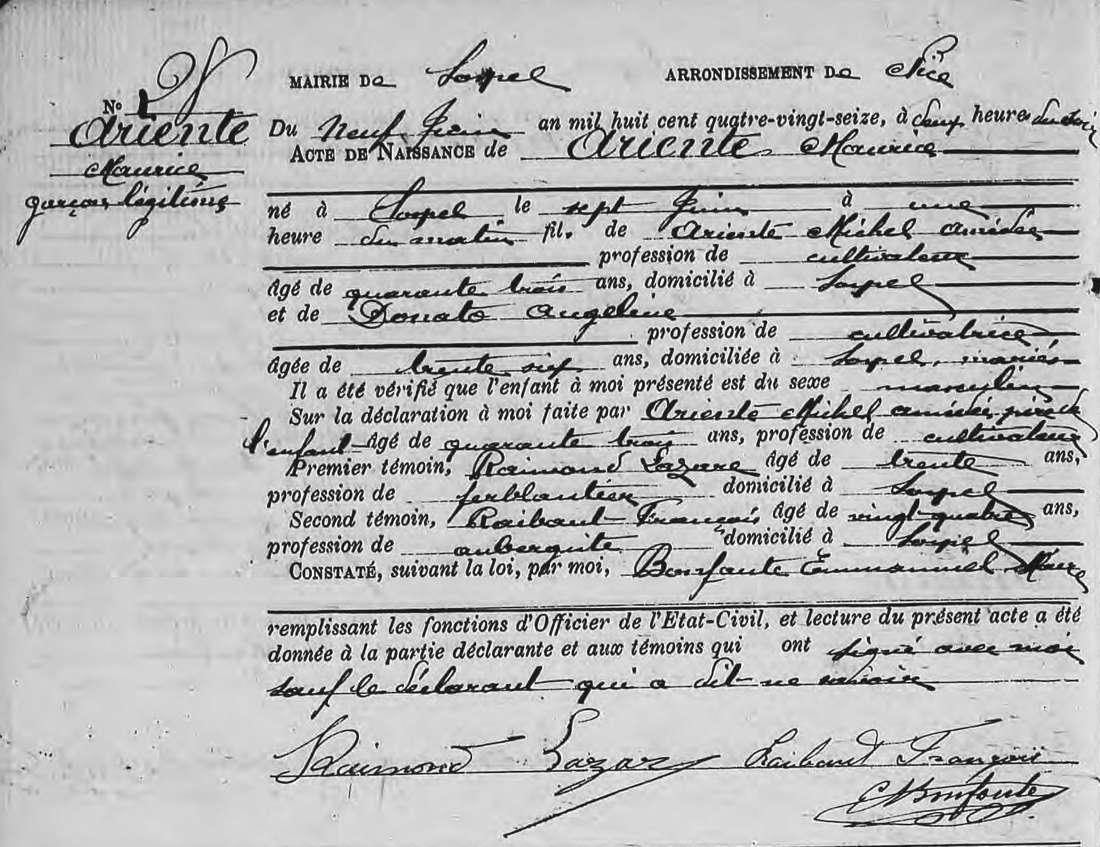 MAIRIE DE Sospel ARRONDISSEMENT DE Nice
N° 28
Ariente
Maurice
garçon légitime
Du Neuf Juin an mil huit cent quatre-vingt-seize, à deux heures du soir
ACTE DE NAISSANCE de Ariente Maurice
né à Sospel le sept Juin à une
heure du matin fils de Ariente Michel amédée
profession de cultivateur
âgé de quarante trois ans, domicilié à Sospel
et de Donato Angeline
profession de cultivatrice
âgée de trente six ans, domiciliée à Sospel, mariés
Il a été vérifié que l'enfant à moi présenté est du sexe masculin
Sur la déclaration à moi faite par Ariente Michel amédée père de
l'enfant âgé de quarante trois ans, profession de cultivateur
Premier témoin, Raimond Lazare âgé de trente ans,
profession de ferblantier domicilié à Sospel
Second témoin, Raibaut François âgé de vingt-quatre ans,
profession de aubergiste domicilié à Sospel
CONSTATÉ, suivant la loi, par moi, Bonfante Emmanuel Maire
remplissant les fonctions d'Officier de l'Etat-Civil, et lecture du présent acte a été
donnée à la partie déclarante et aux témoins qui ont signé avec moi
sauf le déclarant qui a dit ne savoir
Raimond Lazare Raibaut François
Bonfante